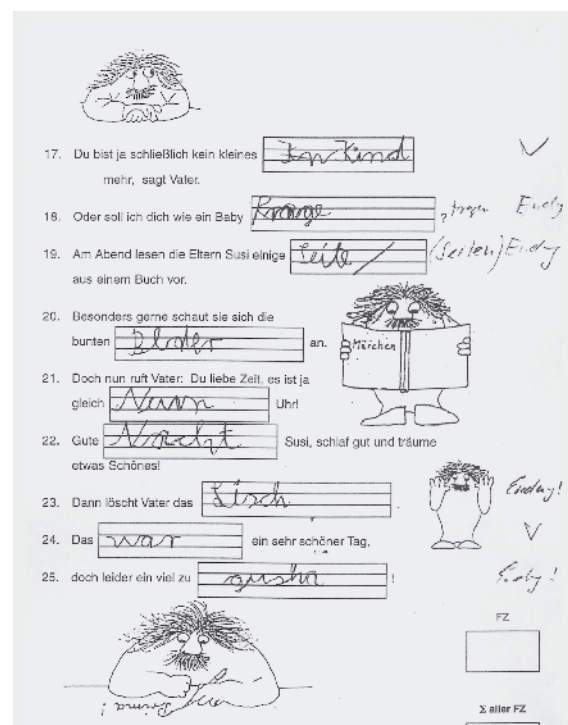 17. Du bist ja schließlich kein kleines Kind
mehr, sagt Vater.
18. Oder soll ich dich wie ein Baby Krange ? tragen Endg
19. Am Abend lesen die Eltern Susi einige Seite / (Seiten) Endg
aus einem Buch vor.
20. Besonders gerne schaut sie sich die
bunten an.
Märchen
21. Doch nun ruft Vater: Du liebe Zeit, es ist ja
gleich Nunn Uhr!
22. Gute Nracht Susi, schlaf gut und träume
etwas Schönes!
23. Dann löscht Vater das Lisch Endung!
24. Das war ein sehr schöner Tag,
25. doch leider ein viel zu gusha ! Endg!
FZ
Prima!
Σ aller FZ